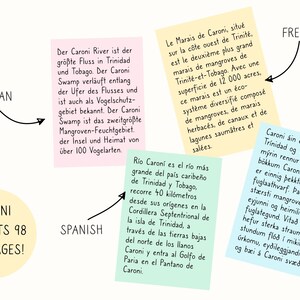 Der Caroni River ist der
größte Fluss in Trinidad
und Tobago. Der Caroni
Swamp verläuft entlang
der Ufer des Flusses und
ist auch als Vogelschutz-
gebiet bekannt. Der Caroni
Swamp ist das zweitgrößte
Mangroven-Feuchtgebiet
der Insel und Heimat von
über 100 Vogelarten.
Le Marais de Caroni, situé
sur la côte ouest de Trinité,
est le deuxième plus grand
marais de mangroves de
Trinité-et-Tobago. Avec une
superficie de 12 000 acres,
ce marais est un éco-
système diversifié composé
de mangroves, de marais
herbacés, de canaux et de
lagunes saumâtres et
salées.
FRE
AN
Río Caroní es el río más
grande del país caribeño
de Trinidad y Tobago,
recorre 40 kilómetros
desde sus orígenes en la
Cordillera Septentrional de
la isla de Trinidad, a
través de las tierras bajas
del norte de los llanos
Caroni y entra al Golfo de
Paria en el Pantano de
Caroni.
SPANISH
Caroni áin er
Trinidad og
mýrin rennur
bökkum Caroni
er einnig þekkt
fuglaathvarf.
stærsti mangrov
eyjunni og heimili
fuglategund. Vitað
stundum flóð í miki
úrkomu, eyðileggjandi
og bæi á Caroni svæð
NI
TS 98
AGES!